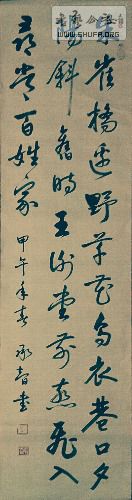 朱雀橋邊野草花烏衣巷口夕
陽斜舊時王謝堂前燕飛入
尋常百姓家
甲午年春
WWW.SHUFA.ORG